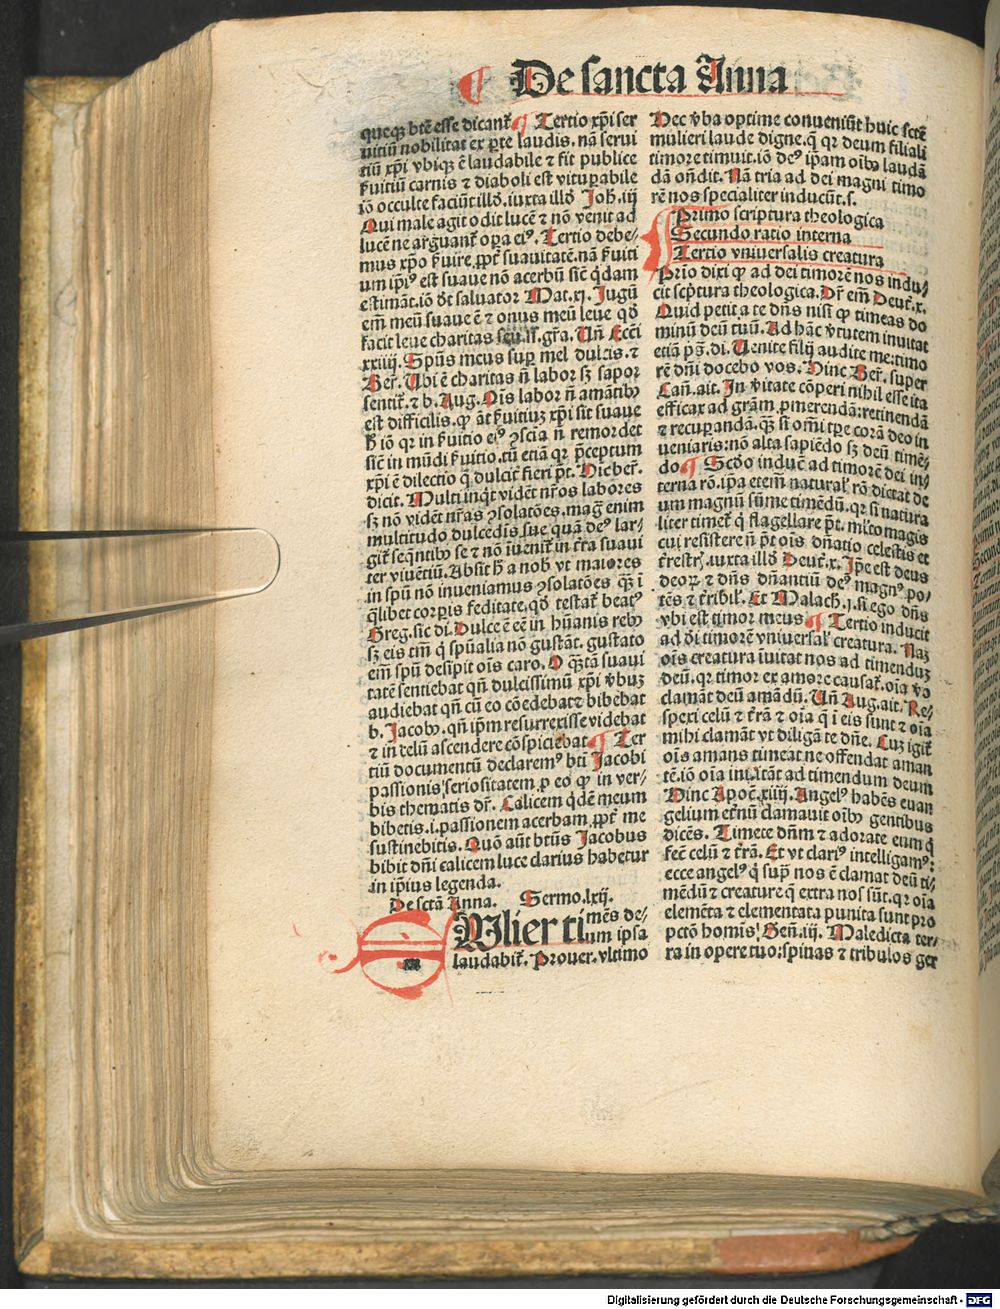 ¶ De sancta Anna
queqꝫ btē esse dicant᷑ ¶ Tertio xp̄i ser
uitiū nobilitat ex ꝑte laudis. nā serui
tiū xp̄i vbiqꝫ ē laudabile ⁊ fit publice
ẜuitiū carnis ⁊ diaboli est vituꝑabile
iō occulte faciūt illd̄. iuxta illd̄ Joh̄. iij
Qui male agit odit lucē ⁊ nō venit ad
lucē ne arguant᷑ oꝑa eiꝰ. Tertio debe⸗
mus xp̄o ẜuire ꝓpt᷑ suauitatē. nā ẜuiti
um ip̄iꝰ est suaue nō acerbū sic̄ q̄dam
estimāt. iō dt̄ saluator Mat. xj. Jugū
em̄ meū suaue ē ⁊ onus meū leue qd̄
facit leue charitas seu .ss. gr̄a. Uñ Ecc̄i
xxiiij. Spūs meus suꝑ mel dulcis. ⁊
Ber̄. Ubi ē charitas n̄ labor sꝫ sapor
sentit᷑. ⁊ b. Aug. Ois labor n̄ amātibꝰ
est difficilis. ꝙ āt ẜuitiuꝫ xp̄i sit suaue
h̄ iō qꝛ in ẜuitio eiꝰ ꝯsciā n̄ remordet
sic̄ in mūdi ẜuitio. tū etiā qꝛ p̄ceptum
xp̄i ē dilectio q̄ dulcit᷑ fieri pt̄. Hic ber̄.
dicit. Multi inqt̄ vidēt nr̄os labores
sꝫ nō vidēt nr̄as ꝯsolatōes. maḡ enim
multitudo dulcedīs sue quā deꝰ lar⸗
git᷑ seq̄ntibꝰ se ⁊ nō īuenit᷑ in tr̄a suaui
ter viuētiū. Absit h̄ a nob̄ vt maiores
in spū nō inueniamus ꝯsolatōes qꝫ ī
q̄libet corꝑis feditate. qd̄ testat᷑ beatꝰ
Greg. sic di. Dulce ē eē in hūanis rebꝰ
sꝫ eis tm̄ q̄ spūalia nō gustāt. gustato
em̄ spū desipit ois caro. O q̄ꝫtā suaui
tatē sentiebat qn̄ dulcissimū xp̄i v̄buꝫ
audiebat qn̄ cū eo cōedebat ⁊ bibebat
b. Jacobꝰ. qn̄ ip̄m resurrexisse videbat
⁊ in celū ascendere cōspiciebat ¶ Ter
tiū documentū declaremꝰ bt̄i Jacobi
passionis seriositatem ꝑ eo ꝙ in ver⸗
bis thematis dr̄. Calicem q̄dē meum
bibetis .i. passionem acerbam ꝓpt᷑ me
sustinebitis. Quō aūt bt̄us Jacobus
bibit dn̄i calicem luce clarius habetur
in ip̄ius legenda.
De sctā Anna. Sermo .lxij.
MUlier timēs de⸗
um ipsa
laudabit᷑. Prouer. vltimo
Hec v̄ba optime conueniūt huic sctē
mulieri laude digne. q̄ qꝛ deum filiali
timore timuit. iō deꝰ ip̄am oībꝰ laudā
dā on̄dit. Nā tria ad dei magni timo
rē nos specialiter inducūt. s.
Primo scriptura theologica
Secundo ratio interna
Tertio vniuersalis creatura
Prīo dixi ꝙ ad dei timorē nos indu⸗
cit scp̄tura theologica. Dr̄ em̄ Deut᷑. x.
Quid petit a te dn̄s nisi ꝙ timeas do
minū deū tuū. Ad hāc v̄tutem inuitat
etiā ꝓꝓ. di. Uenite filij audite me: timo
rē dn̄i docebo vos. Hinc Ber̄. super
Can̄. ait. In v̄itate cōperi nihil esse ita
efficax ad grām ꝓmerendā: retinendā
⁊ recuꝑandā. qꝫ si om̄i tp̄e corā deo in
veniaris: nō alta sapiēdo sꝫ deū timē⸗
do ¶ Scd̄o inducˀ ad timorē dei in⸗
terna rō. ip̄a etem̄ natural᷑ rō dictat de
um magnū sūme timēdū. qꝛ si natura
liter timet᷑ q̄ flagellare pt̄. ml̄to magis
cui resistere n̄ pt̄ ois dn̄atio celestis et
t᷑restr̄. iuxta illd̄ Deut᷑. x. Ip̄e est deus
deoꝝ ⁊ dn̄s dn̄antiū deꝰ magnꝰ po⸗
tēs ⁊ t᷑ribil᷑. Et Malach. j. si ego dn̄s
vbi est timor meus ¶ Tertio inducit
ad di timorē vniuersal᷑ creatura. Naꝫ
ois creatura īuitat nos ad timenduꝫ
deū. qꝛ timor ex amore causat᷑. oīa v̄o
clamāt deū amādū. Uñ Aug. ait. Re⸗
spexi celū ⁊ tr̄ā ⁊ oīa q̄ ī eis sunt ⁊ oīa
mihi clamāt vt diligā te dn̄e. Cuꝫ igit᷑
ois amans timeat ne offendat aman
tē. iō oīa inuitāt ad timendum deum
Hinc Apoc̄. xiiij. Angelꝰ habēs euan
gelium et᷑nū clamauit oībꝰ gentibus
dicēs. Timete dn̄m ⁊ adorate eum q̄
fec̄ celū ⁊ tr̄ā. Et vt clariꝰ intelligamꝰ:
ecce angelꝰ q̄ supͣ nos ē clamat deū ti⸗
mēdū ⁊ creature q̄ extra nos sūt. qꝛ oīa
elemēta ⁊ elementata punita sunt pro
pctō homīs. Gen̄. iij. Maledicta ter⸗
ra in opere tuo: spinas ⁊ tribulos ger
Digitalisierung gefördert durch die Deutsche Forschungsgemeinschaft - DFG